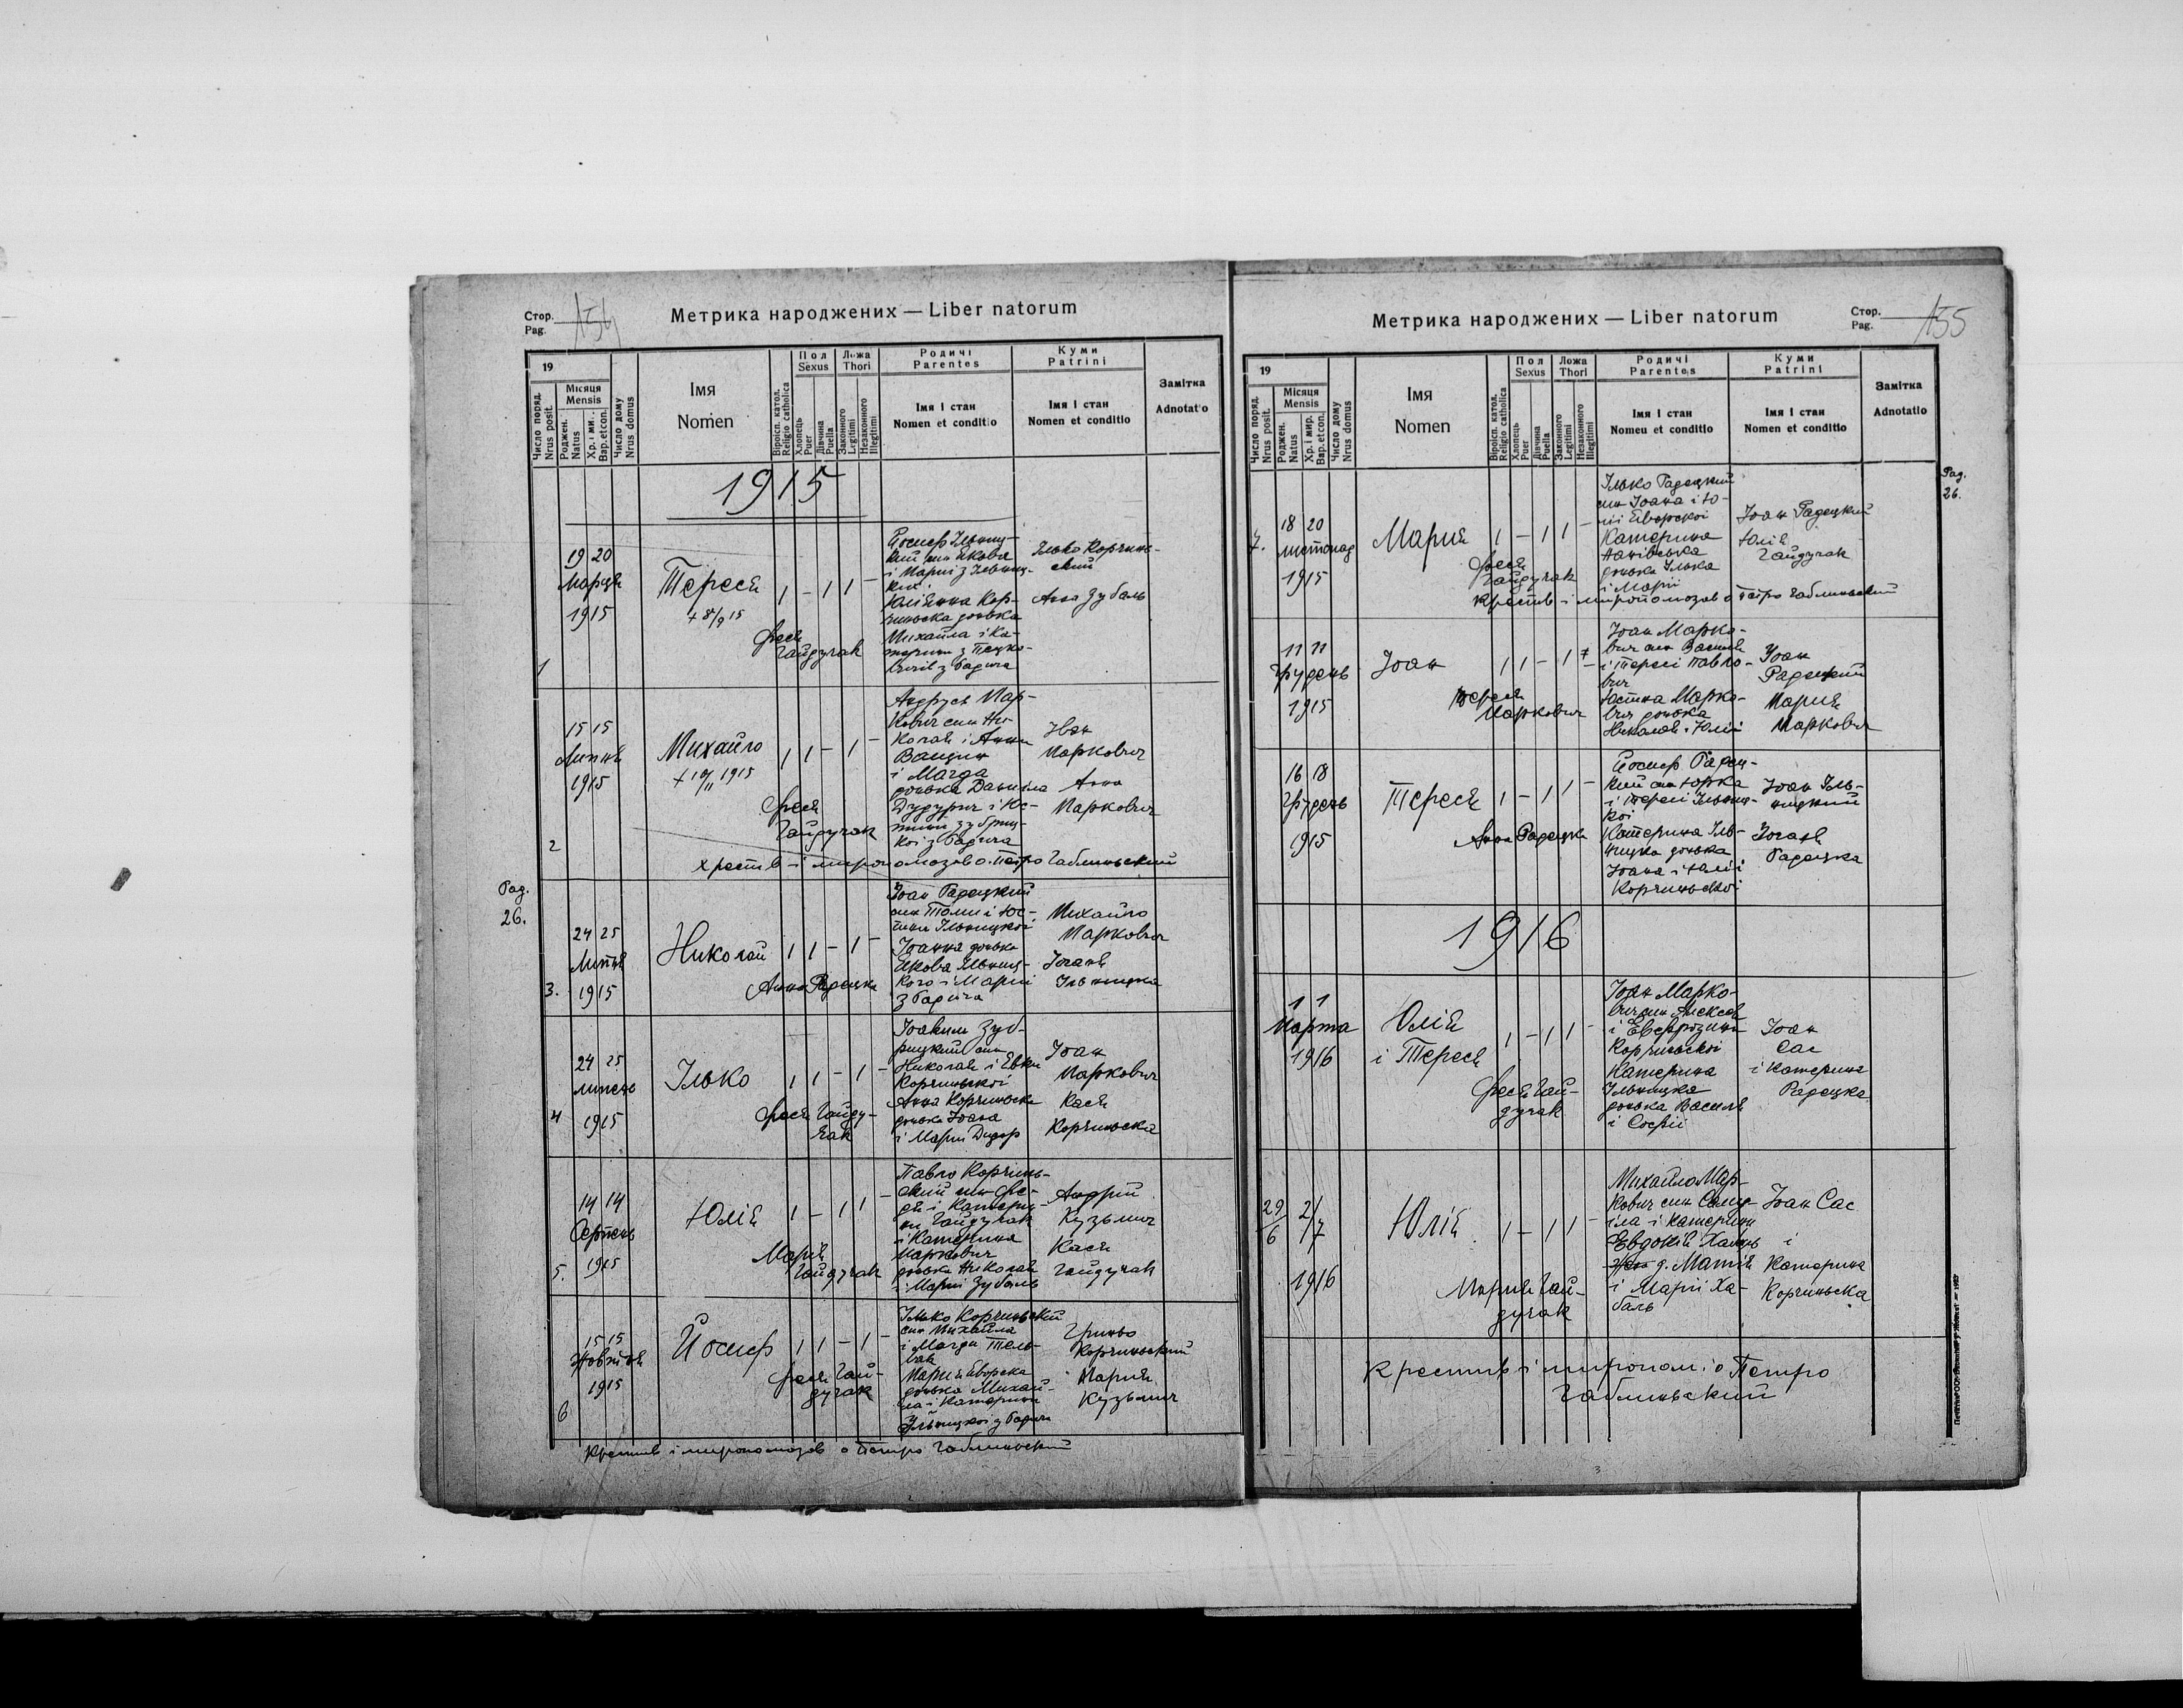 Стор.
Pag. 154
Метрика народжених — Liber natorum
19
Число поряд.
Nrus posit.
Місяця
Mensis
Роджен.
Natus
Хр. і мир.
Bap. et con.
Число дому
Nrus domus
Імя
Nomen
Віроісп. катол.
Religio catholica
Пол
Sexus
Хлопець
Puer
Дівчина
Puella
Ложа
Thori
Законного
Legitimi
Незаконного
Illegitimi
Родичі
Parentes
Імя і стан
Nomen et conditio
Куми
Patrini
Імя і стан
Nomen et conditio
Замітка
Adnotatio
1915
1
19 20
Марця
1915
Тереся
+ 8/9 15
1 - 1 1 -
Феся
Гайдучак
Йосиф Ільниц-
кий син Якова
і Марії з Ільниц-
ких
Юліянна Кор-
чинська донька
Михайла і Ка-
терини
з Бадича
Ілько Корчинь-
ский
Анна Зубаль
2
15 15
Липня
1915
Михайло
1 1 - 1 -
Феся
Гайдучак
Андрусь Мар-
кович син Ни-
колая і Анни
Ванцин
і Магда
донька Данила
Дудурич і Юс-
тини Зубриц-
кої з Бадича
Іван
Маркович
Анна
Маркович
хрестив і миропомазов о. Петро Габлиньский
Pag.
26.
3.
24 25
Липня
1915
Николай
1 1 - 1 -
Анна Радецка
Іоан Радецкий
син Томи і Юс-
тини Ільницкої
Іоанна донька
Якова Ільниц-
кого і Марії
з Бадича
Михайло
Маркович
Ільницка
4
24 25
липень
1915
Ілько
1 1 - 1 -
Феся Гайду-
чак
Іоаким Зуб-
рицкий син
Николая і Евки
Корчинської
Анна Корчинська
донька Іоана
і Марії
Іоан
Маркович
Кася
Корчинська
5.
14 14
Серпень
1915
Юлія
1 - 1 1 -
Марія
Гайдучак
Павло Корчинь-
ский син Фе-
дя і Катери-
ни Гайдучак
і Катерина
Маркович
донька Николая
і Марії Зубаль
Андрій
Кузьмич
Кася
Гайдучак
6
15 15
Жовтня
1915
Йосиф
1 1 - 1 -
Феся Гай-
дучак
Ілько Корчинський
син Михайла
і Магди Тель-
вак
Марія Яворска
донька Михай-
ла і Катерини
Ільницкої з Бадича
Гринько
Корчиньский
Марія
Кузьмич
Крестив і миропомазов о Петро Габлиньский
Метрика народжених — Liber natorum
Стор.
Pag. 155
19
Число поряд.
Nrus posit.
Місяця
Mensis
Роджен.
Natus
Хр. і мир.
Bap. et con.
Число дому
Nrus domus
Імя
Nomen
Віроісп. катол.
Religio catholica
Пол
Sexus
Хлопець
Puer
Дівчина
Puella
Ложа
Thori
Законного
Legitimi
Незаконного
Illegitimi
Родичі
Parentes
Імя і стан
Nomeu et conditio
Куми
Patrini
Імя і стан
Nomen et conditio
Замітка
Adnotatio
Pag.
26.
7.
18 20
листопад
1915
Мария
1 - 1 1 -
Феся
Гайдучак
Ілько Радецкий
син Іоана і Ю-
лії Яворскої
Катерина
донька Ілька
і Марії
Іоан Радецкий
Юлія
Гайдучак
Крестив і миропомазов о Петро Габлиньский
11 11
Грудень
1915
Іоан
1 1 - 1
Тереся
Маркович
Іоан Марко-
вич син Василя
і Тересі Павло-
вич
Юстина Марко-
вич донька
Николая і Юлії
Іоан
Радецкий
Мария
Маркович
16 18
Грудень
1915
Тереся
1 - 1 1 -
Анна Радецка
Йосиф Радец-
кий син Юрка
і Тересі Ільниц-
кої
Катерина Іль-
ницка донька
Іоана і Юлії
Корчинської
Іоан Іль-
ницкий
Радецка
1916
1 1
Марта
1916
Юлія
і Тереся
1 - 1 1 -
Феся Гай-
дучак
Іоан Марко-
вич син Алексея
і Евфрозини
Корчинської
Катерина
Ільницка
донька Василя
і Софії
Іоан
Сас
і Катерина
Радецка
29/6 2/7
1916
Юлія
1 - 1 1 -
Мария Гай-
дучак
Михайло Мар-
кович син Саму-
їла і Катерини
Евдокія
д. Матія
і Марії Ха-
баль
Іоан Сас
і
Катерина
Корчинська
Крестив і миропом. о Петро
Габлиньский